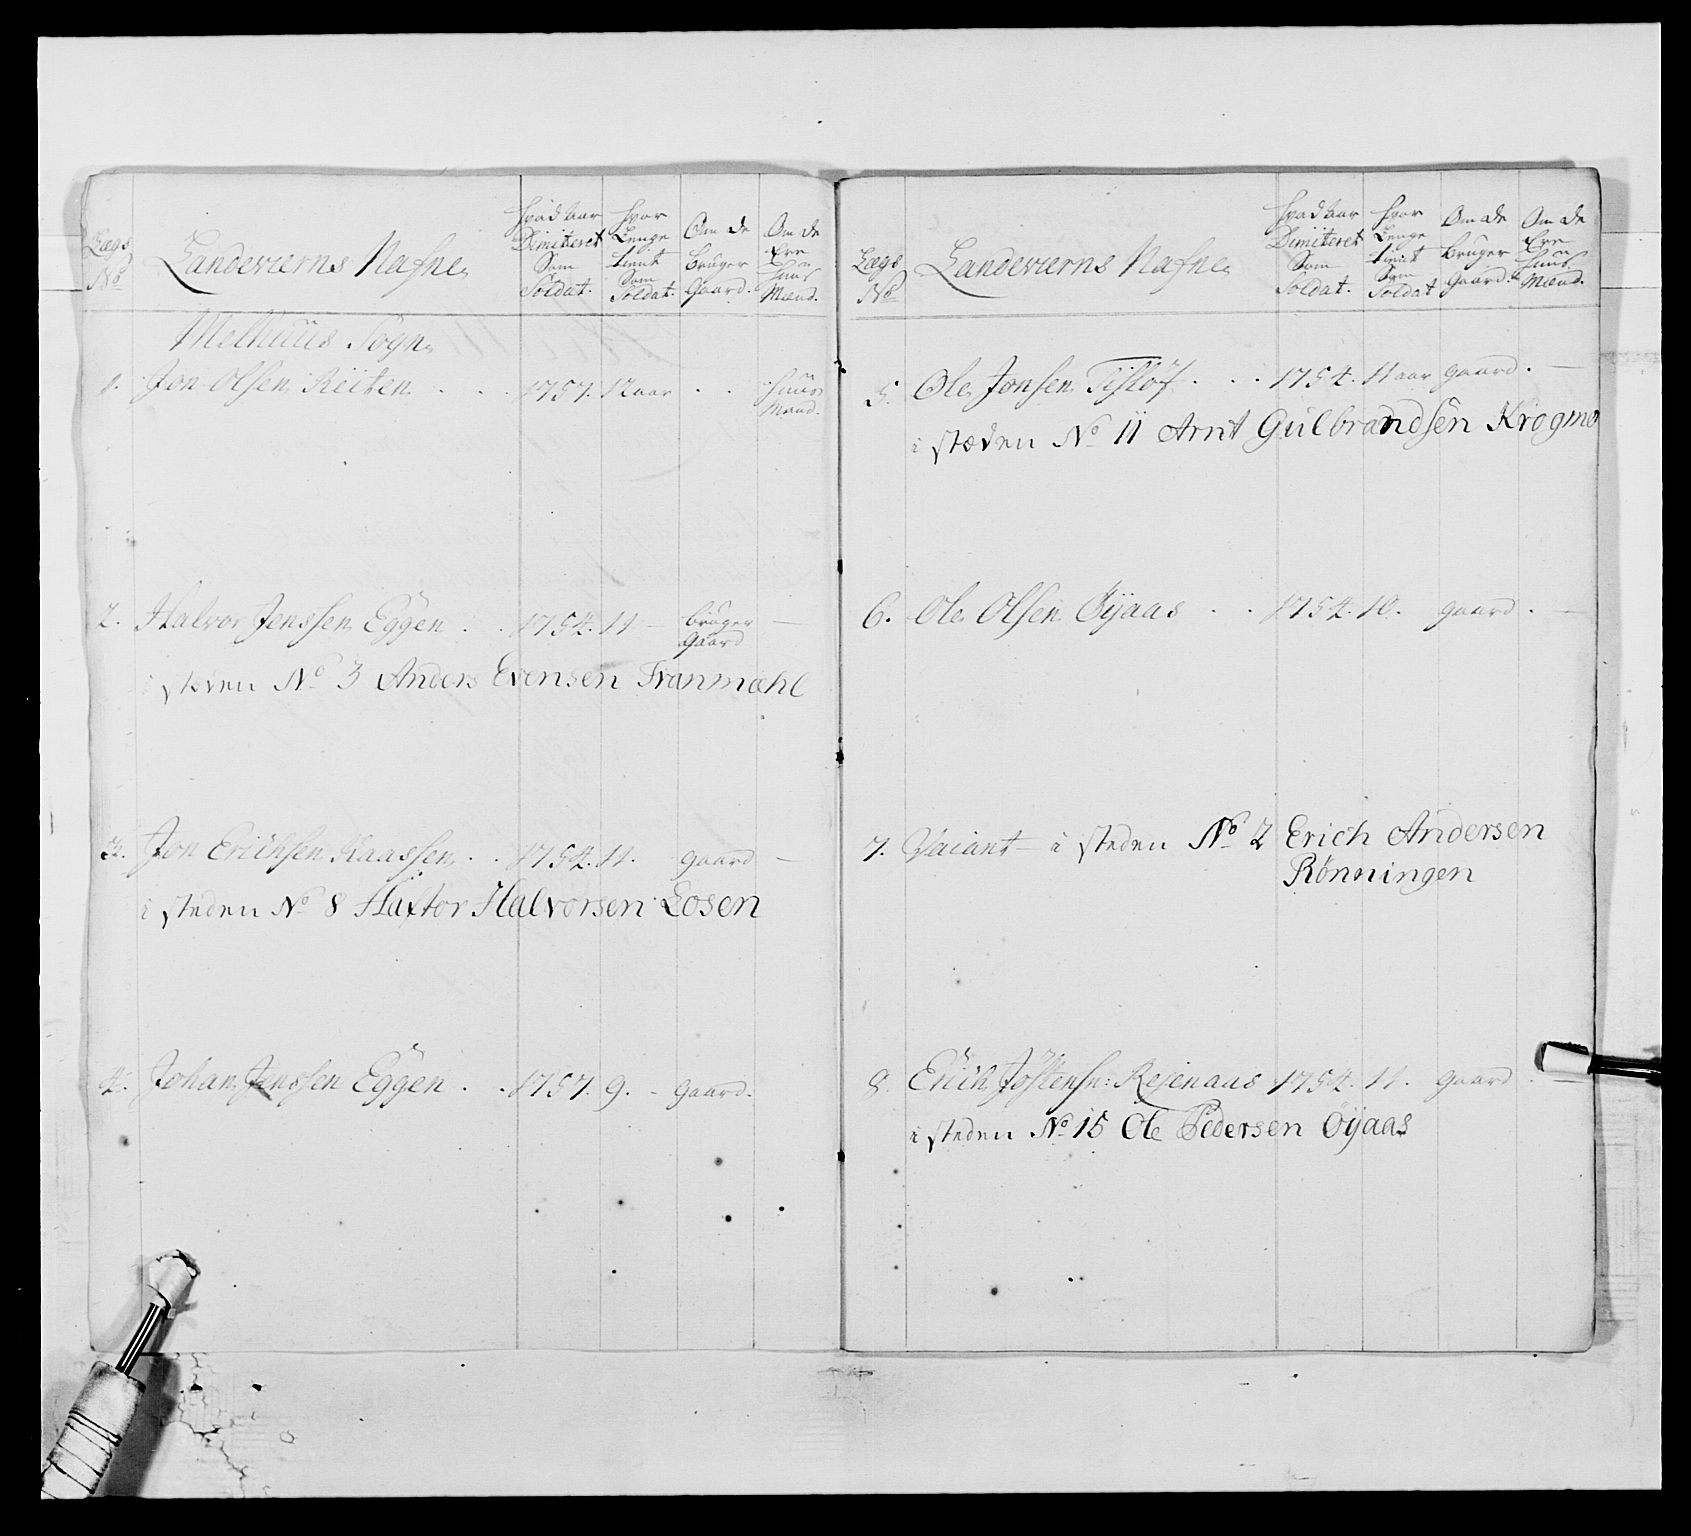 Lægs No
Landeværns Nafne
Hvad Aar Dimiteret Som Soldat.
Hvor Lenge tient Som Soldat.
Om de bruger Gaard.
Om de Ere Huus Mænd.
Melhuus Sogn
1. Jon Olsen Reiten . . . 1757. 12 aar . . Huus Mænd.
2. Halvor Jenssen Eggen . . 1754. 11 - bruger Gaard —
i steden No 3 Anders Evensen Franmæhl
3. Jon Erichsen Kaassen . . 1754. 11. gaard —
i steden No 8 Haftor Halvorsen Losen
4. Johan Jenssen Eggen . . 1757. 9. - gaard.
Lægs No
Landeværns Nafne
Hvad Aar Dimiteret Som Soldat.
Hvor Lenge tient Som Soldat
Om de bruger Gaard.
Om de Ere Huus Mænd.
5. Ole Jonsen . . . 1754. 11 aar gaard . —
i stæden No 11 Arnt Gulbrandsen Krogmo
6. Ole Olsen Øyaas . . 1754. 10. gaard . —
7. Vacant — i steden No 2 Erich Andersen
Rønningen
8. Erich Jøstensn: 1754. 11. gaard . —
i steden No 15 Ole Pedersen Øyaas